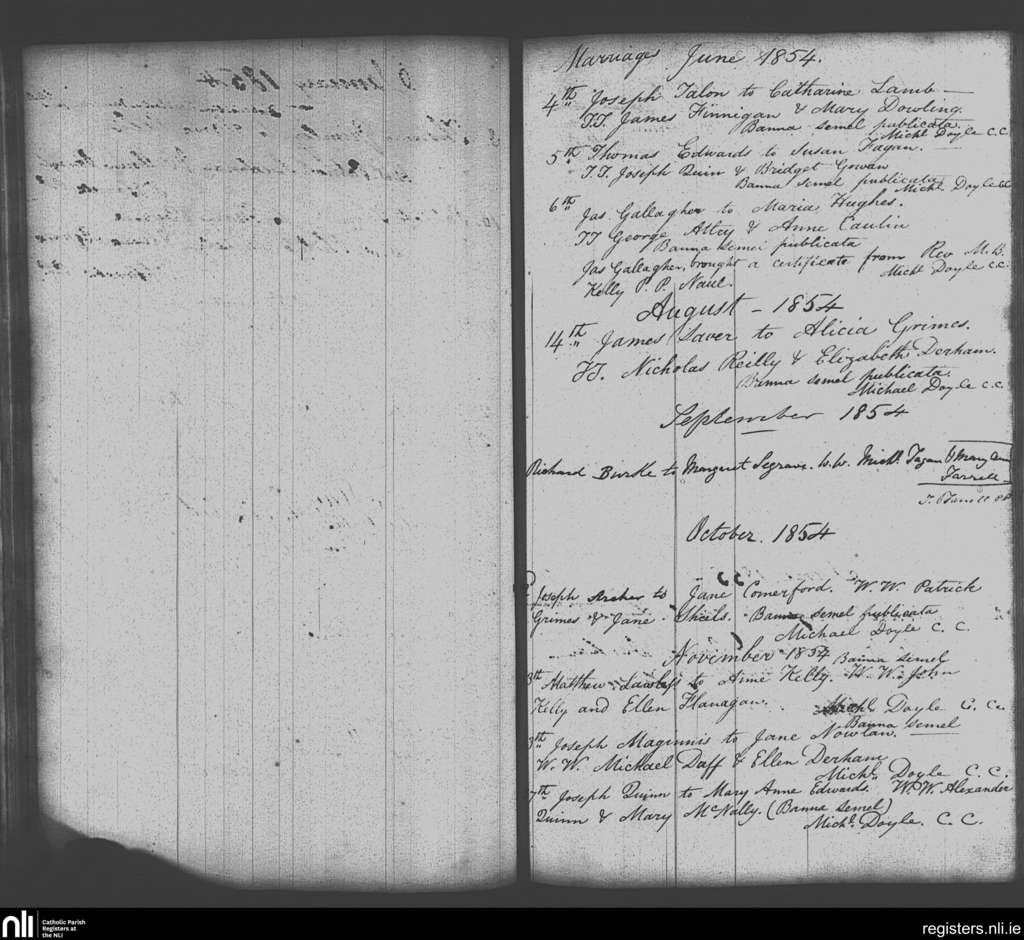 Marriages June 1854.
4th Joseph Talon to Catharine Lamb
TT. James Finnigan & Mary Dowling
Banna semel publicata
Michl Doyle C.C.
5th Thomas Edwards to Susan Fagan.
T.T. Joseph Quin & Bridget Gowan
Banna semel publicata
Michl Doyle CC
6th
Jas Gallagher to Maria Hughes.
TT George Atley & Anne Caulin
Banna semel publicata
Jas Gallagher, brought a certificate from Rev M.B.
Kelly P.P. Naul.
Michl Doyle C.C.
August - 1854
14th James Saver to Alicia Grimes.
TT. Nicholas Reilly & Elizabeth Derham.
Banna semel publicata
Michael Doyle C.C.
September 1854
Richard Burke to Margaret Segrave. W.W. Michl Fagan & Mary Ann
Farrell
October. 1854
Joseph Archer to Jane Comerford. W.W. Patrick
Grimes & Jane Sheils. Banna semel publicata
Michael Doyle C. C.
November 1854
Banna semel
3th Matthew Lawless to Anne Kelly. W.W. John
Kelly and Ellen Flanagan.
Michl Doyle C. C.
Banna semel
3th Joseph Maginnis to Jane Nowlan.
W.W. Michael Daff & Ellen Derham
Michl. Doyle C.C.
7th Joseph Quinn to Mary Anne Edwards. W.W. Alexander
Quinn & Mary McNally. (Banna semel)
Michl. Doyle. C.C.
nli
Catholic Parish
Registers at
the NLI
registers.nli.ie